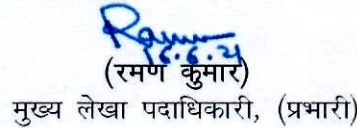 16.6.21
(रमण कुमार)
मुख्य लेखा पदाधिकारी, (प्रभारी)